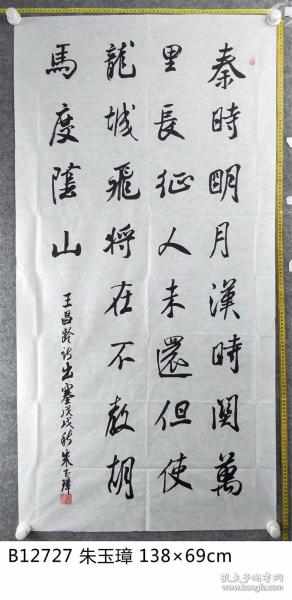 秦時明月漢時関萬
里長征人未還但使
龍城飛将在不教胡
馬度陰山
王昌龄诗出塞戊戌秋朱玉璋
B12727 朱玉璋 138×69cm
孔夫子旧书网